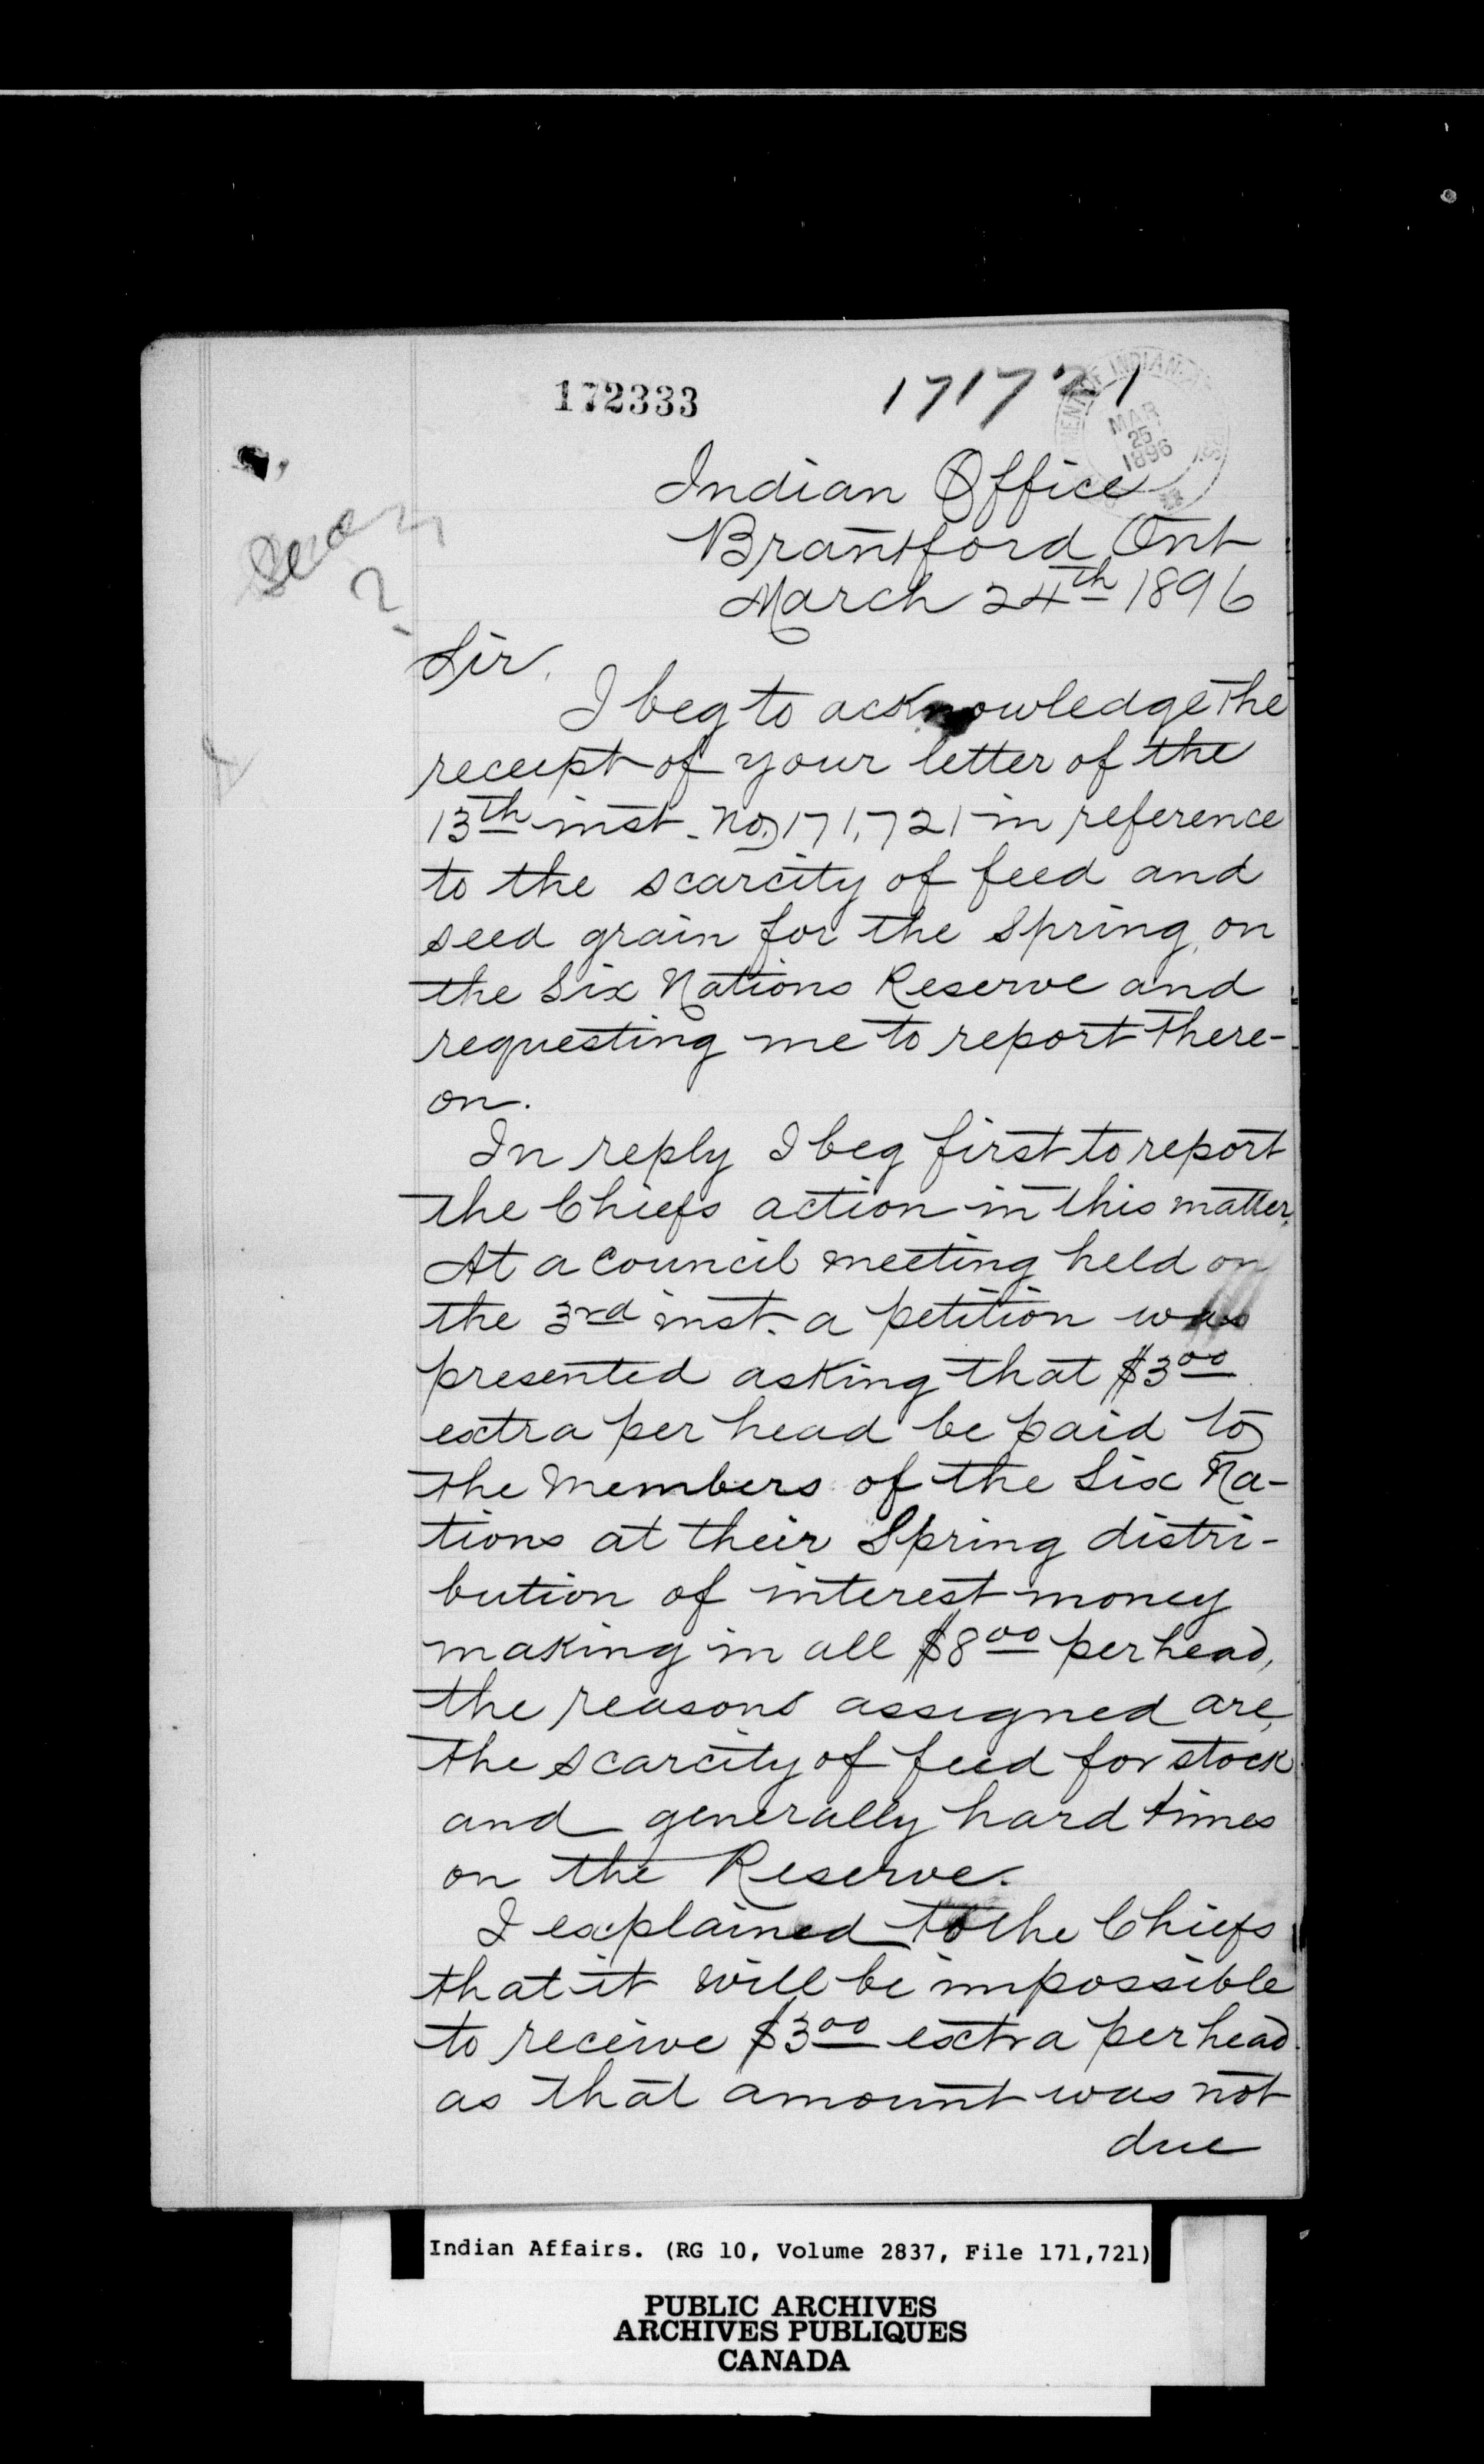 172333
171721
DEPARTMENT OF INDIAN AFFAIRS
MAR
25
1896
Indian Office
Brantford, Ont
March 24th 1896
Sir,
I beg to acknowledge the
receipt of your letter of the
13th inst. No. 171,721 in reference
to the scarcity of feed and
seed grain for the Spring, on
the Six Nations Reserve and
requesting me to report there-
on.
In reply I beg first to report
the Chiefs action in this matter.
At a Council meeting held on
the 3rd inst. a petition was
presented asking that $3.00
extra per head be paid to
the Members of the Six Na-
tions at their Spring distri-
bution of interest money
making in all $8.00 per head,
the reasons assigned are,
the scarcity of feed for stock
and generally hard times
on the Reserve.
I explained to the Chiefs
that it will be impossible
to receive $3.00 extra per head.
as that amount was not
due
Indian Affairs. (RG 10, Volume 2837, File 171,721)
PUBLIC ARCHIVES
ARCHIVES PUBLIQUES
CANADA